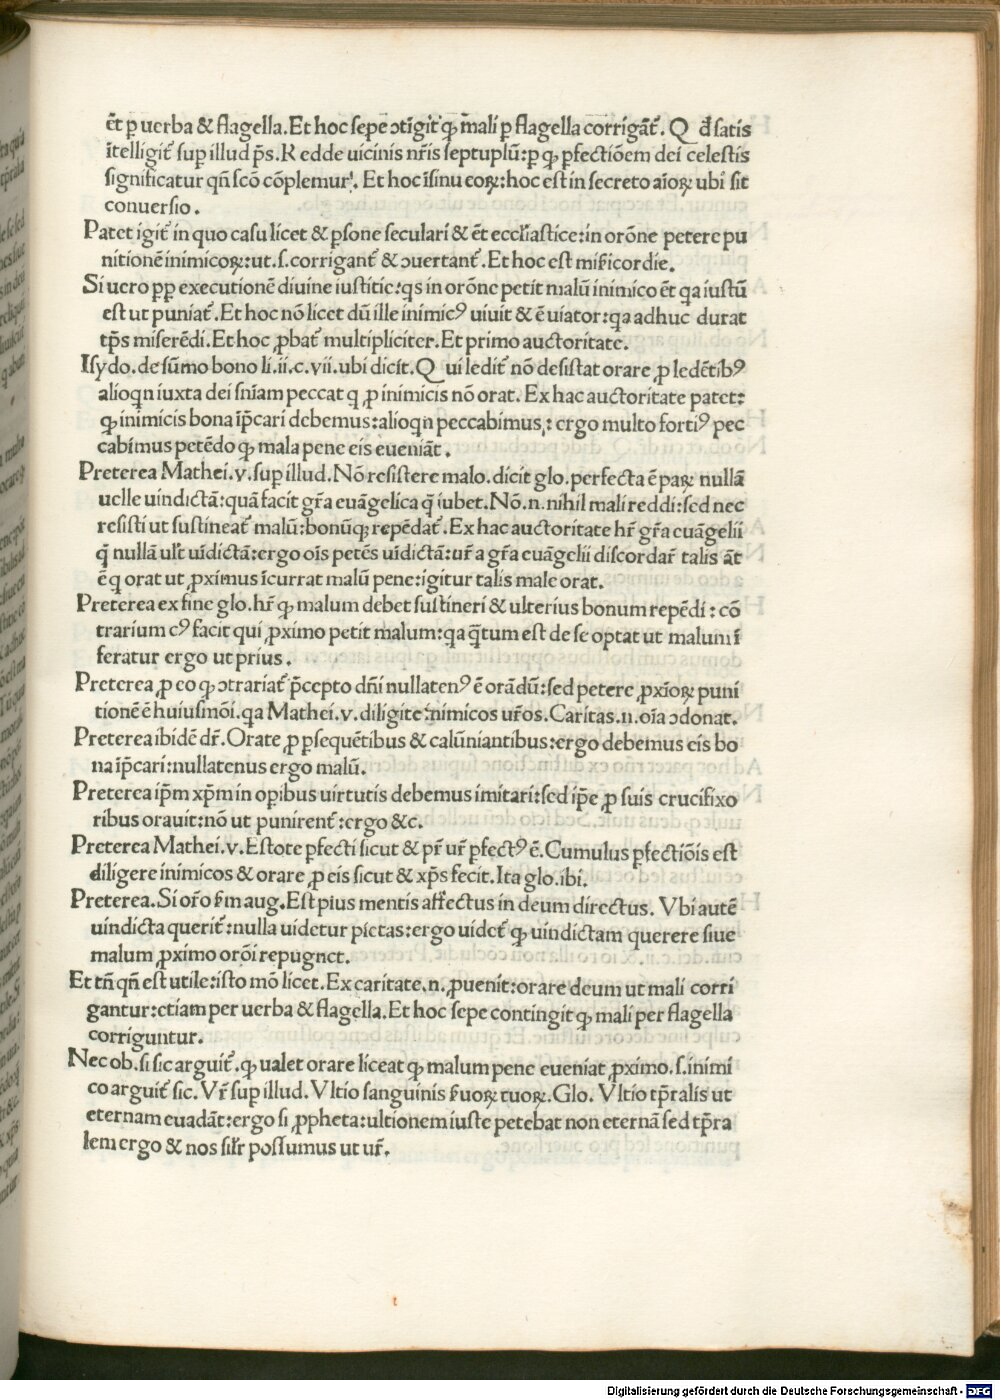 ēt ꝑ uerba & flagella. Et hoc sepe ↄtīgit᷑ ꝙ mali ꝑ flagella corrigāt᷑. Q đ satis
ītelligit᷑ sup illud ps̄. R edde uicinis nr̄is septuplū: ꝑ ꝙ ꝑfectiōem dei celestis
significatur qn̄ scō cōplemur. Et hoc īsinu eoꝝ: hoc est in secreto aīoꝝ ubi sit
conuersio.
Patet igit᷑ in quo casu licet & ꝑsone seculari & ēt eccl̄iastice: in orōne petere pu
nitionē inimicoꝝ: ut. s. corrigant᷑ & ↄuertant᷑. Et hoc est mīcordie.
Si uero ꝓp executionē diuine iustitie: qs in orōne petit malū inimico ēt qa iustū
est ut puniat᷑. Et hoc nō licet dū ille inimicꝰ uiuit & ē uiator: qa adhuc durat
tp̄s miserēdi. Et hoc ꝓbat᷑ multipliciter. Et primo auctoritate.
Isydo. de sūmo bono li. ii. c. vii. ubi dicit. Q ui ledit᷑ nō desistat orare ꝓ ledētibꝰ
alioqn iuxta dei sn̄iam peccat q ꝓ inimicis nō orat. Ex hac auctoritate patet:
ꝙ inimicis bona īp̄cari debemus: alioqn peccabimus: ergo multo fortiꝰ pec
cabimus petēdo ꝙ mala pene eis eueniāt.
Preterea Mathei. v. sup illud. Nō resistere malo. dicit glo. perfecta ē paꝝ nullā
uelle uindictā: quā facit gr̄a euāgelica q̄ iubet. Nō. n. nihil mali reddi: sed nec
resisti ut sustineat᷑ malū: bonūꝙ repēdat᷑. Ex hac auctoritate hr̄ gr̄a euāgelii
q̄ nullā ult᷑ uīdictā: ergo oīs petēs uīdictā: ur̄ a gr̄a euāgelii discordar̄ talis āt
ē q orat ut ꝓximus īcurrat malū pene: igitur talis male orat.
Preterea ex fine glo. hr̄ ꝙ malum debet sustineri & ulterius bonum repēdi: cō
trarium cꝰ facit qui ꝓximo petit malum: qa q̄tum est de se optat ut malum ī
feratur ergo ut prius.
Preterea ꝓ eo ꝙ ↄtrariat᷑ p̄cepto dn̄i nullatenꝰ ē orādū: sed petere ꝓxīoꝝ puni
tionē ē huiusmōi. qa Mathei. v. diligite inimicos ur̄os. Caritas. n. oīa ↄdonat.
Preterea ibidē dr̄. Orate ꝓ ꝑsequētibus & calūniantibus: ergo debemus eis bo
na īp̄cari: nullatenus ergo malū.
Preterea ip̄m xp̄m in oꝑibus uirtutis debemus imitari: sed ip̄e ꝓ suis crucifixo
ribus orauit: nō ut punirent᷑: ergo &c.
Preterea Mathei. v. Estote ꝑfecti sicut & pr̄ ur̄ ꝑfectꝰ ē. Cumulus ꝑfectiōis est
diligere inimicos & orare ꝓ eis sicut & xp̄s fecit. Ita glo. ibi.
Preterea. Si or̄o s̄m aug. Est pius mentis affectus in deum directus. Vbi autē
uindicta querit᷑: nulla uidetur pietas: ergo uidet᷑ ꝙ uindictam querere siue
malum ꝓximo orōi repugnet.
Et tn̄ qn̄ est utile: isto mō licet. Ex caritate. n. ꝓuenit: orare deum ut mali corri
gantur: etiam per uerba & flagella. Et hoc sepe contingit ꝙ mali per flagella
corriguntur.
Nec ob. si sic arguit᷑. ꝙ ualet orare liceat ꝙ malum pene eueniat ꝓximo. s. inimi
co arguit᷑ sic. Vr̄ sup illud. Vltio sanguinis s̄uoꝝ tuoꝝ. Glo. Vltio tp̄ralis ut
eternam euadāt: ergo si ꝓpheta: ultionem iuste petebat non eternā sed tp̄ra
lem ergo & nos sil̄r possumus ut ur̄.
Digitalisierung gefördert durch die Deutsche Forschungsgemeinschaft - DFG